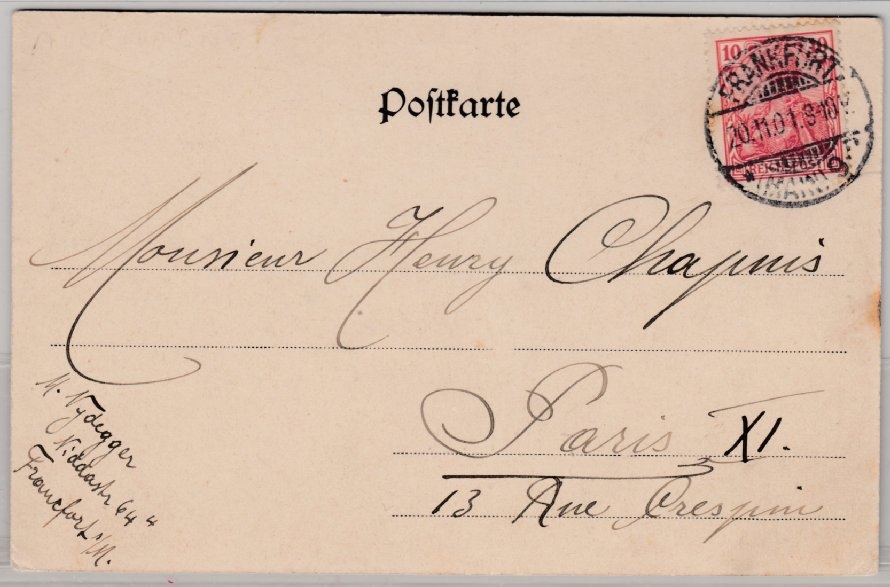 Postkarte
10 10
FRANKFURT
20.11.01.8-10V
* (MAIN) 9
REICHSPOST
Monsieur Henry Chapuis
Paris XI.
13 Rue Crespin
M. Nydegger
Niddastr 64
Francfort a/M.